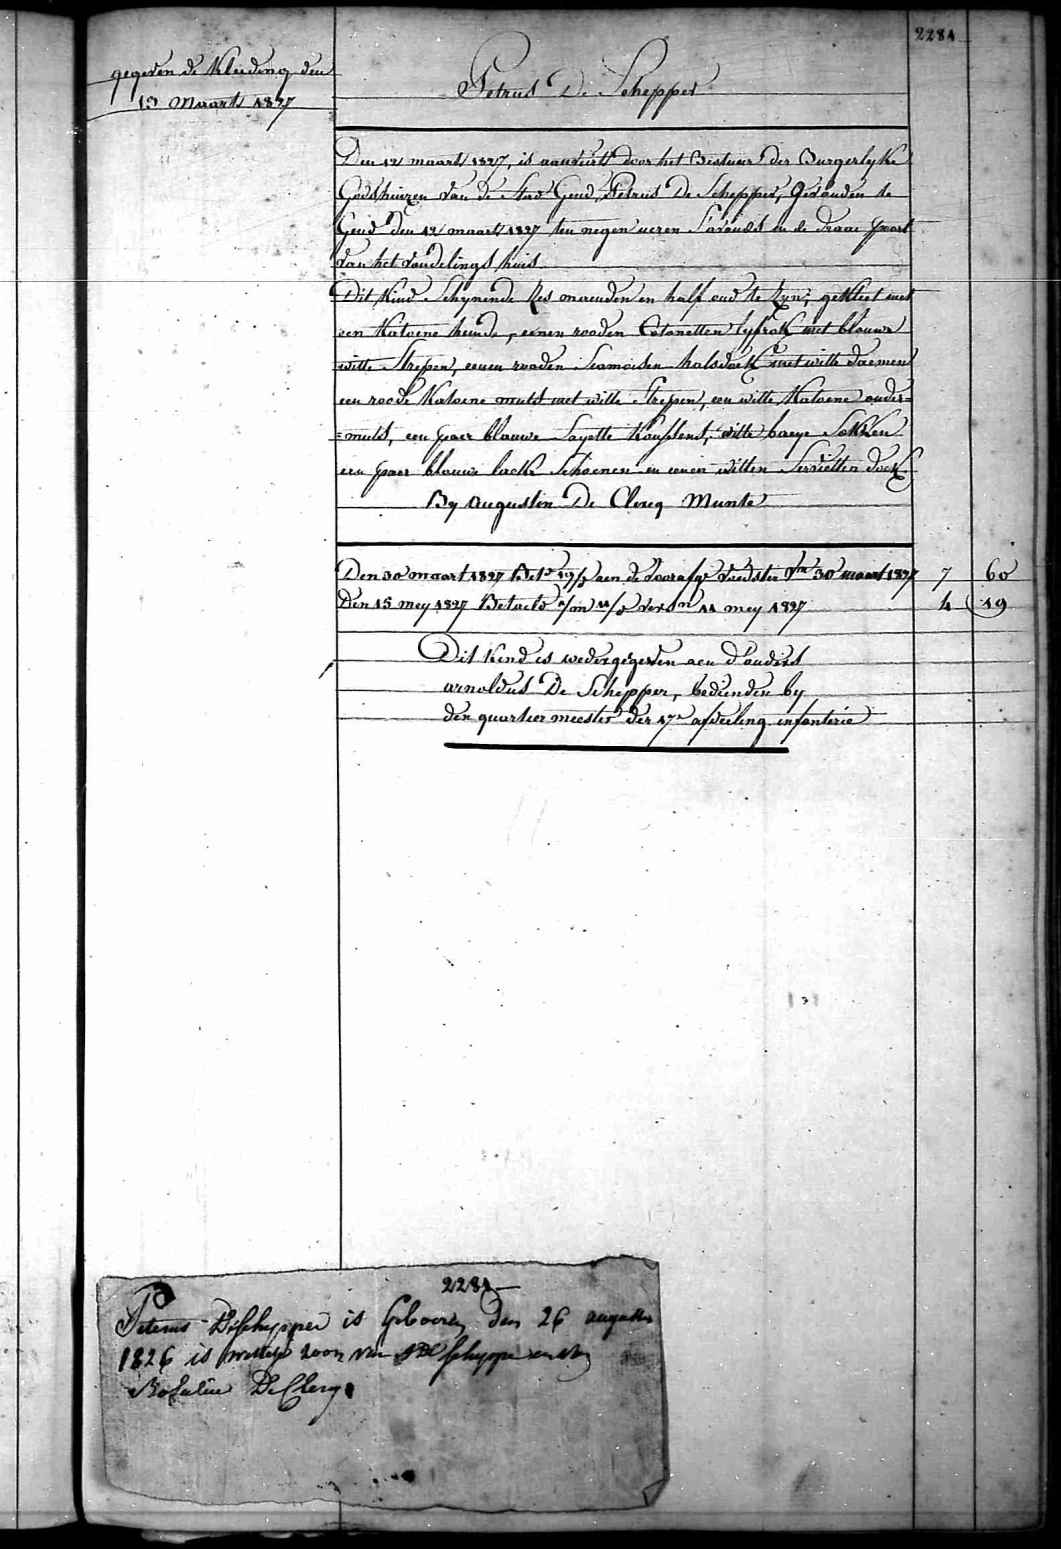 2281
gegeven de Kleeding den
13 maart 1827
Petrus De Schepper
Den 12 maart 1827, is aanveirt door het Bestuur der Burgerlyke
Godshuizen van de Stad Gend, Petrus De Schepper, Gevonden te
Gend den 12 maart 1827 ten negen ueren S'avonds in de draai poort
van het vondelings huis
Dit Kind Schynende Zes maenden en half oud te Zyn, gekleet met
een Katoene hemde, eenen rooden Cotonetten lyfrok met blauwe
witte Strepen, eenen rooden Siamoisen halsdoek met witte
een roode Katoene muts met witte Strepen, een witte Katoene onder=
=muts, een paer blauwe Sayette Koussens, witte baeye Sokken
een paer blauwe Schoenen en eenen witten Servietten doek
By Augustin De Clercq Munte
Den 30 maart 1827 Bet. 19/ aen de voorafge voedster 30 maart 1827 7 60
Den 15 mey 1827 Betaelt 11 mey 1827 4 19
Dit Kind is wedergegeven aen d'ouders
arnoldus De Schepper, bedienden by
den quartier meester der 17e afdeeling infanterie
2281
Peterus DeSchepper is Geboren den 26 augusti
1826 is wettig zoon van De schepper en van
Rosalie De Clerq